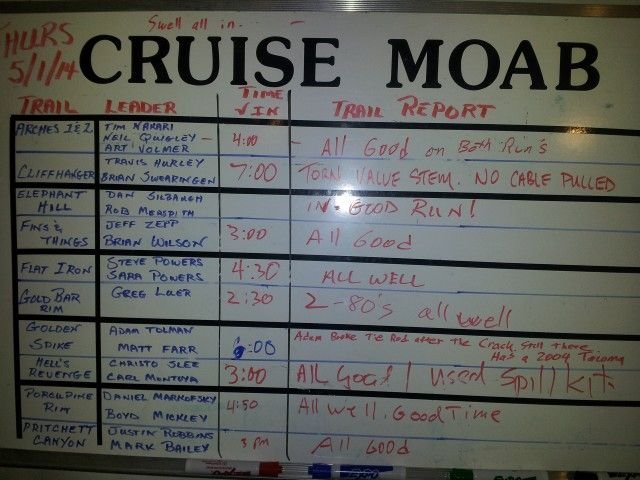 Swell all in.
THURS
5/1/14
CRUISE MOAB
TRAIL LEADER TIME √ IN TRAIL REPORT
ARCHES 1&2 TIM NAKARI
NEIL QUIGLEY 4:00 All Good on Both Run's
ART VOLMER
CLIFFHANGER TRAVIS HURLEY 7:00 TORN VALVE STEM. NO CABLE PULLED
BRIAN SWEARINGEN
ELEPHANT HILL DAN SILBAUGH IN. GOOD RUN!
ROB MEREDITH
FINS & THINGS JEFF ZEPP 3:00 All Good
BRIAN WILSON
FLAT IRON STEVE POWERS 4:30 ALL WELL
SARA POWERS
GOLD BAR RIM GREG LUER 2:30 2-80's all well
GOLDEN SPIKE ADAM TOLMAN Adam Broke Tie Rod after the Crack. Still there
MATT FARR :00 Has a 2004 Tacoma
HELL'S REVENGE CHRISTO SLEE 3:00 All Good / used Spill Kit
CARL MONTOYA
PORCUPINE RIM DANIEL MARKOFSKY 4:50 All Well. Good Time
BOYD MICKLEY
PRITCHETT CANYON JUSTIN ROBBINS 3 PM All Good
MARK BAILEY